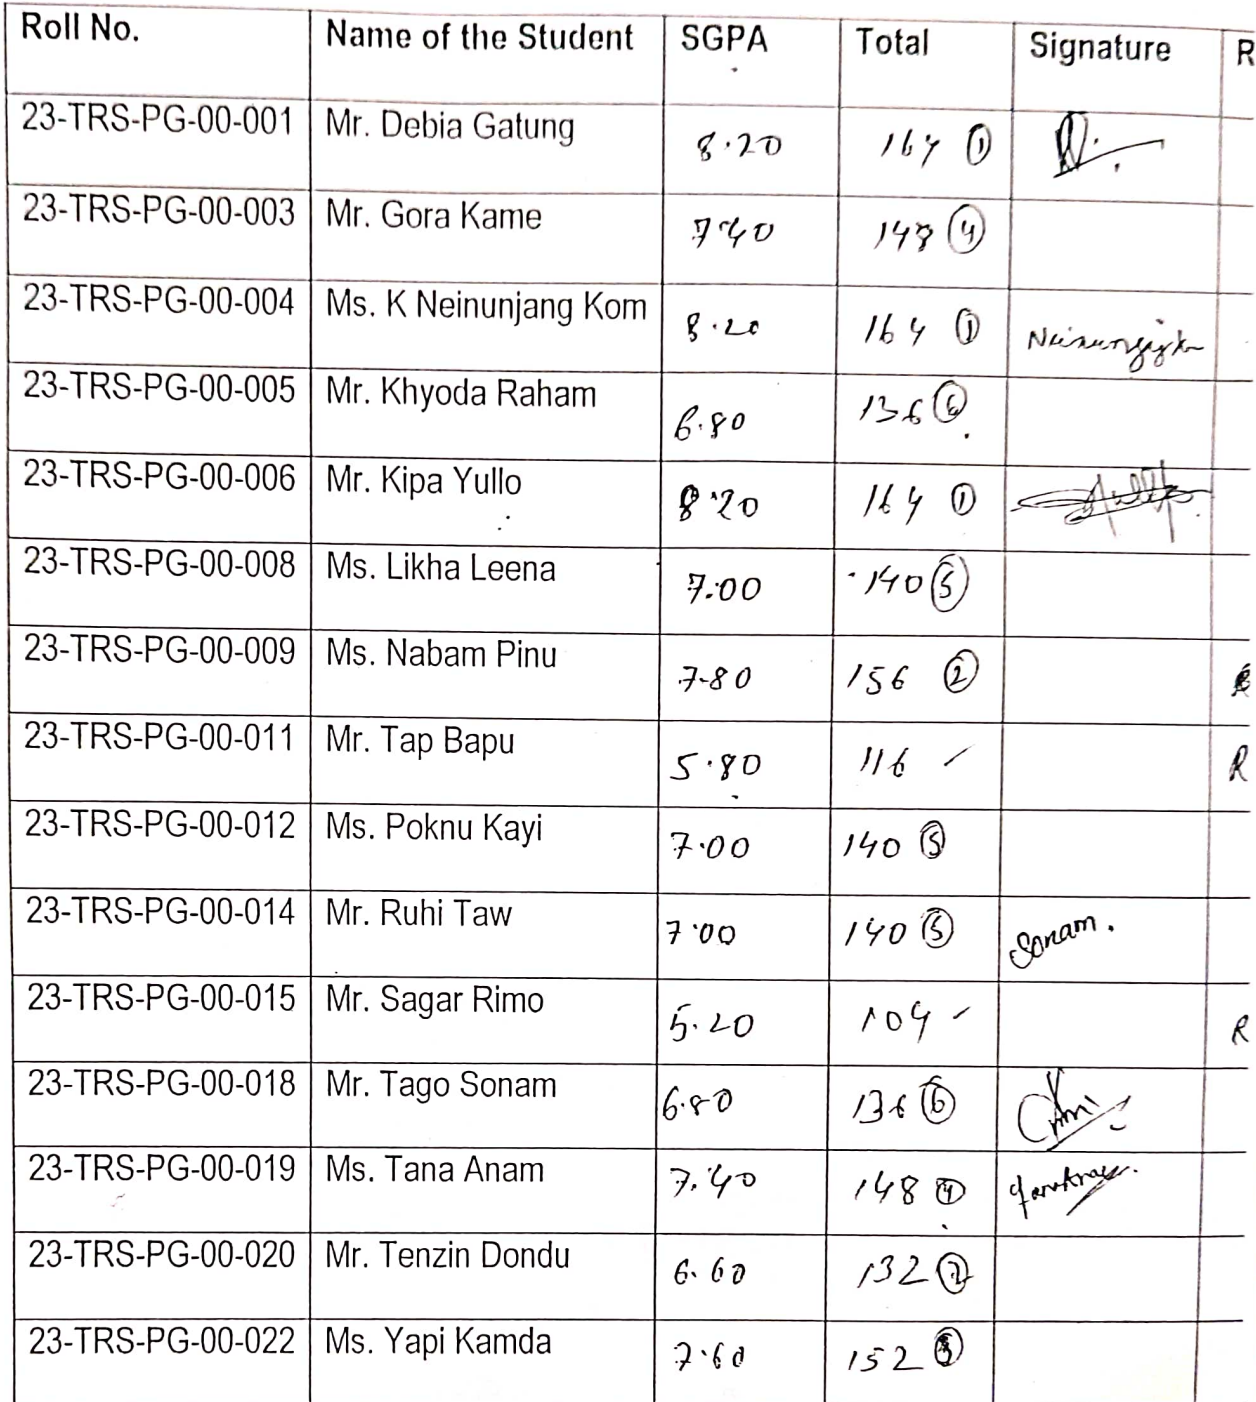 Roll No. Name of the Student SGPA Total Signature R
23-TRS-PG-00-001 Mr. Debia Gatung 8.20 164 ①
23-TRS-PG-00-003 Mr. Gora Kame 7.40 148 ④
23-TRS-PG-00-004 Ms. K Neinunjang Kom 8.20 164 ①
23-TRS-PG-00-005 Mr. Khyoda Raham 6.80 136 ⑥
23-TRS-PG-00-006 Mr. Kipa Yullo 8.20 164 ①
23-TRS-PG-00-008 Ms. Likha Leena 7.00 140 ⑤
23-TRS-PG-00-009 Ms. Nabam Pinu 7.80 156 ②
23-TRS-PG-00-011 Mr. Tap Bapu 5.80 116 R
23-TRS-PG-00-012 Ms. Poknu Kayi 7.00 140 ⑤
23-TRS-PG-00-014 Mr. Ruhi Taw 7.00 140 ⑤ Sonam.
23-TRS-PG-00-015 Mr. Sagar Rimo 5.20 104 R
23-TRS-PG-00-018 Mr. Tago Sonam 6.80 136 ⑥
23-TRS-PG-00-019 Ms. Tana Anam 7.40 148 ④
23-TRS-PG-00-020 Mr. Tenzin Dondu 6.60 132
23-TRS-PG-00-022 Ms. Yapi Kamda 7.60 152 ③